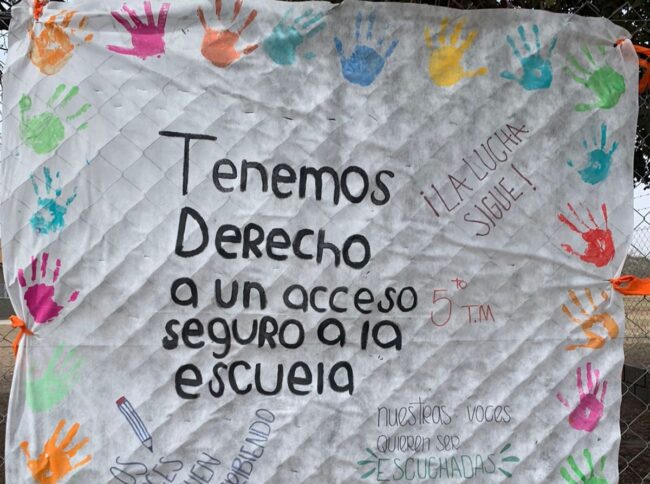 Tenemos
Derecho
a un acceso
seguro a la
escuela
¡LA LUCHA
SIGUE!
5to
T.M
nuestras voces
quieren ser
ESCUCHADAS